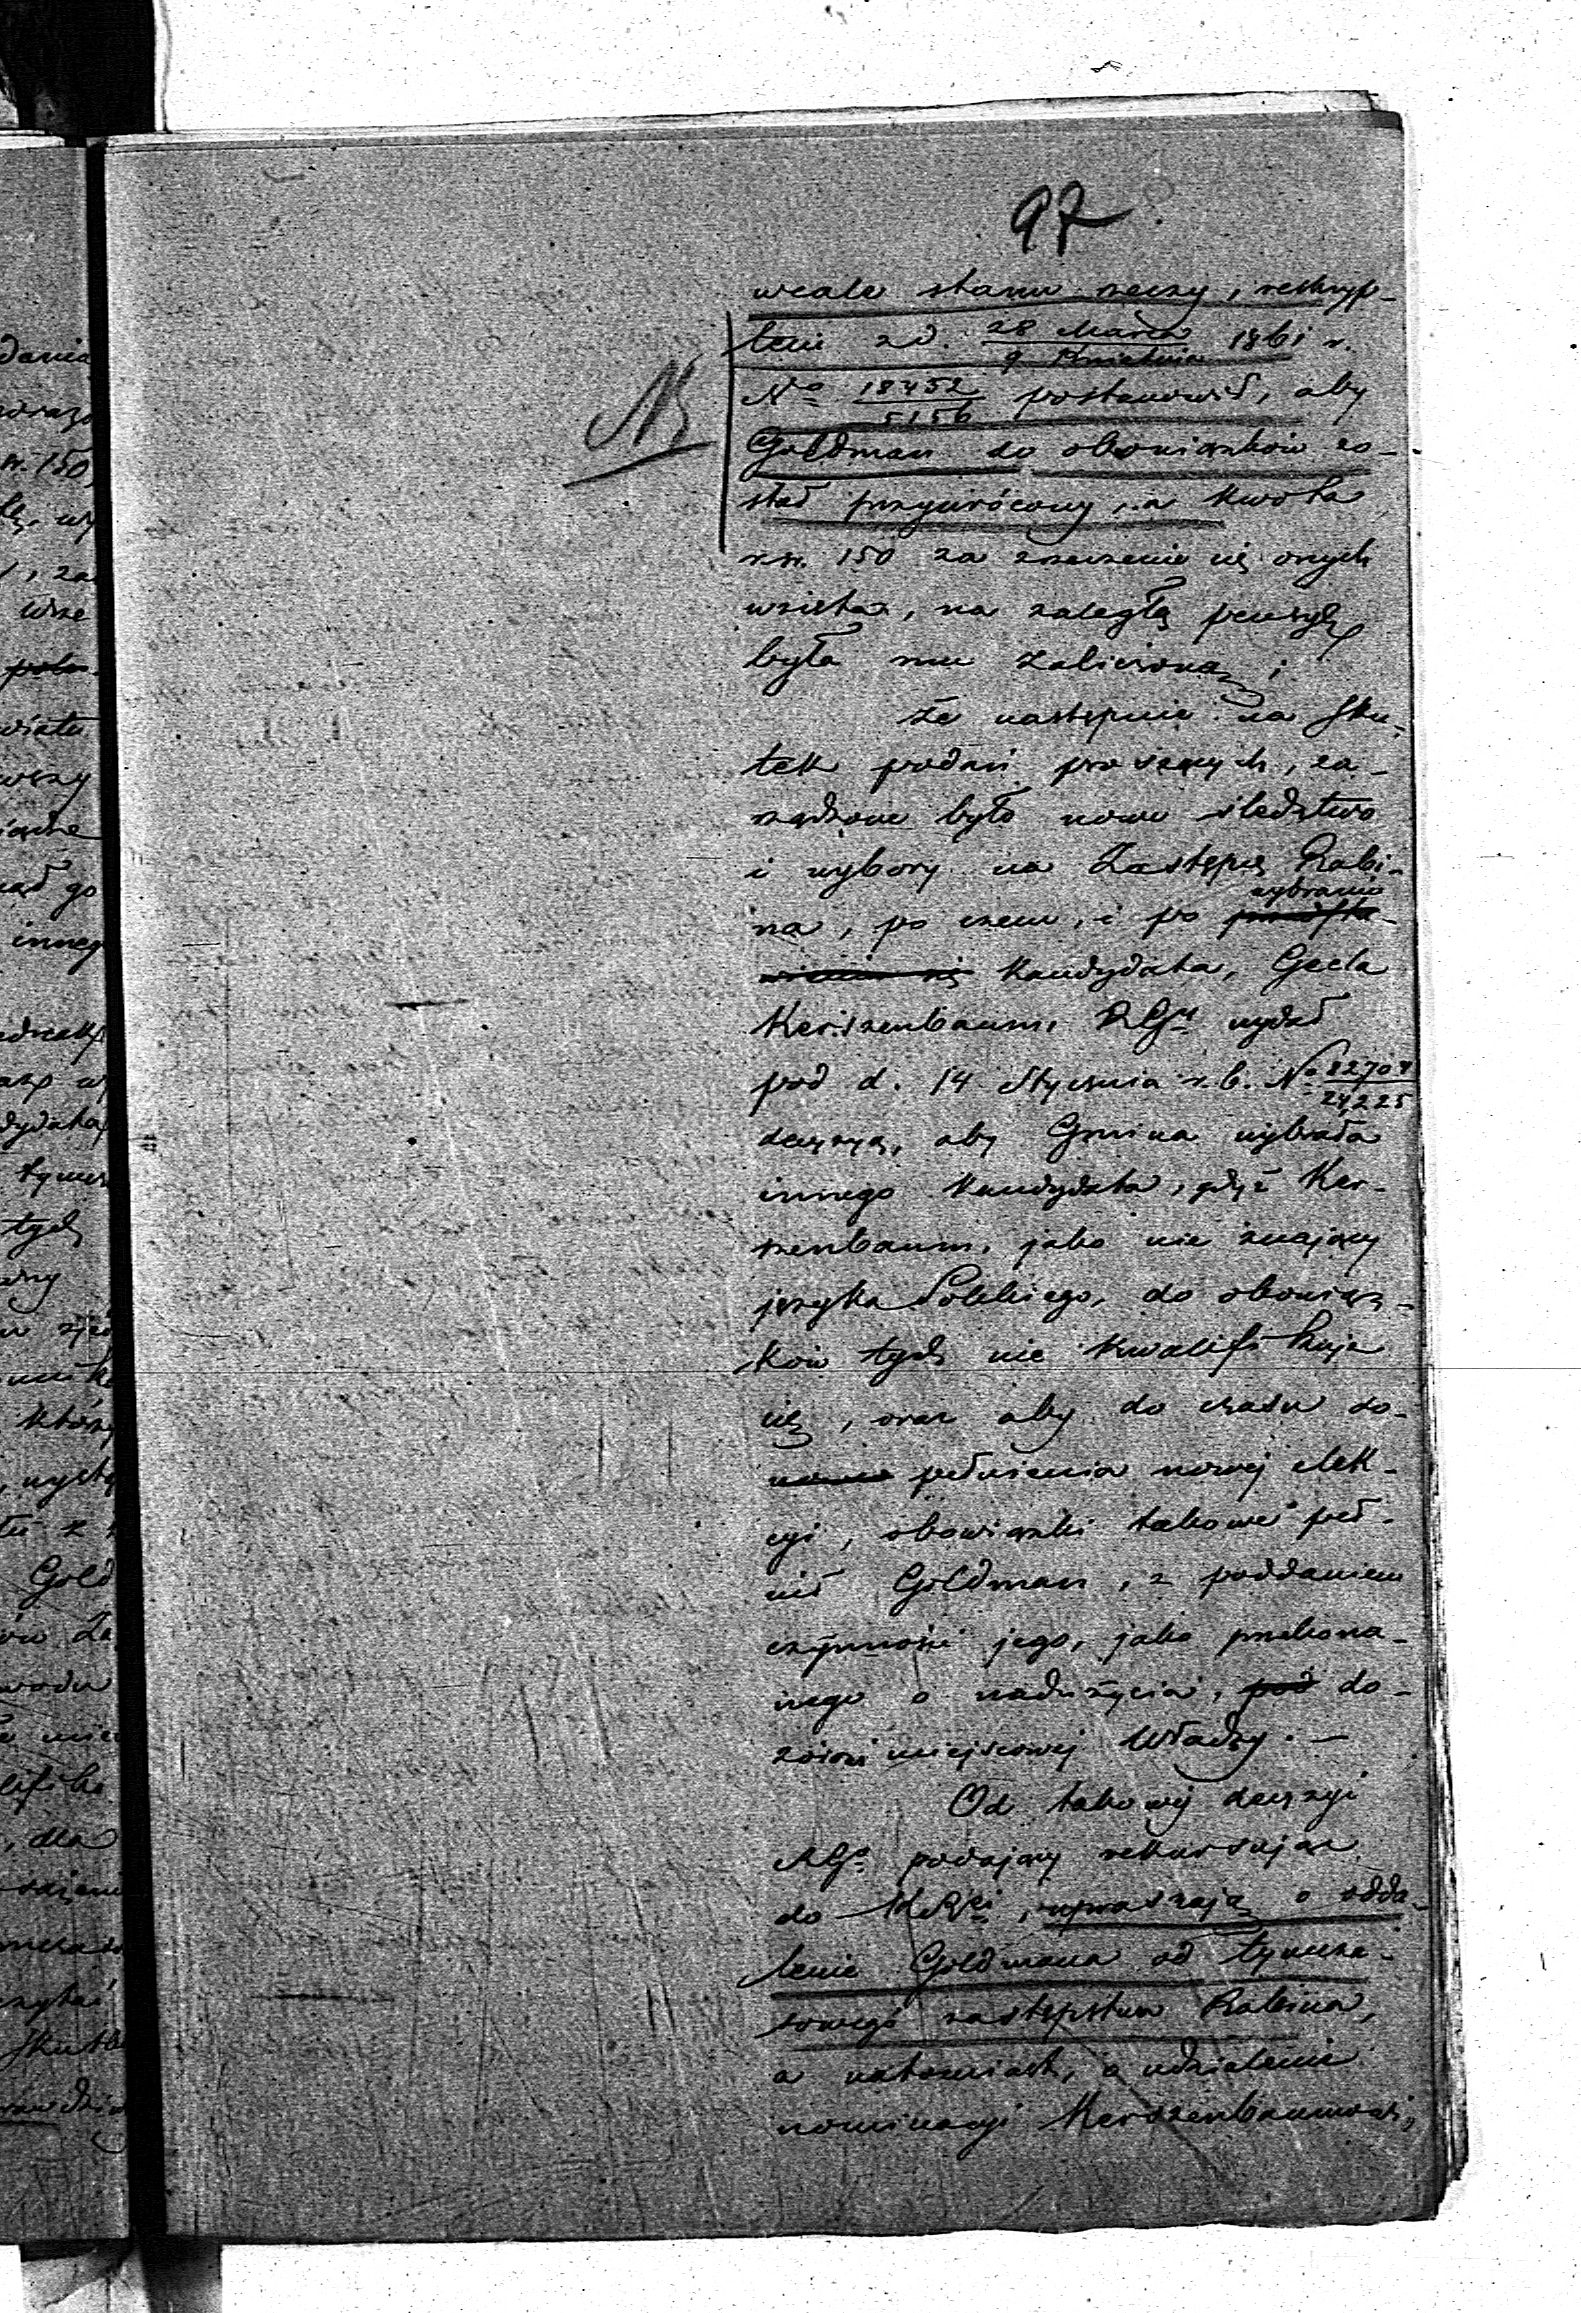 97
wcale stanu rzeczy, reskryp-
tem z d. 28 Marca / 9 Kwietnia 1861 r.
Nb
No 18452 / 5156 postanowił, aby
Goldman do obowiązków zo-
stał przywrócony, a kwota
rsr. 150 za zrzeczenie się onych
wzięta, na zaległą pensyę
była mu zaliczoną;
że następnie na sku-
tek podań proszących, za-
rządzone było nowe śledztwo
i wybory na Zastępcę Rabi-
na, po czem, i po wybraniu
kandydata, Gecla
Kerszenbaum, RGu wydał
pod d. 14 Stycznia r. b. No 82704 / 24,225
decyzyą, aby Gmina wybrała
innego kandydata, gdyż Ker-
szenbaum, jako nie znający
języka Polskiego, do obowiąz-
ków tych nie kwalifikuje
się, oraz aby do czasu do-
pełnienia nowej elek-
cyi, obowiązki takowe peł-
nił Goldman, z poddaniem
czynności jego, jako przekona-
nego o nadużycia, pod do-
zór miejscowej Władzy. —
Od takowej decyzyi
RGo podający rekursując
do KRi, upraszają o odda-
lenie Goldmana od tymcza-
sowego zastępstwa Rabina,
a natomiast, o udzielenie
nominacyi Kerszenbaumowi,